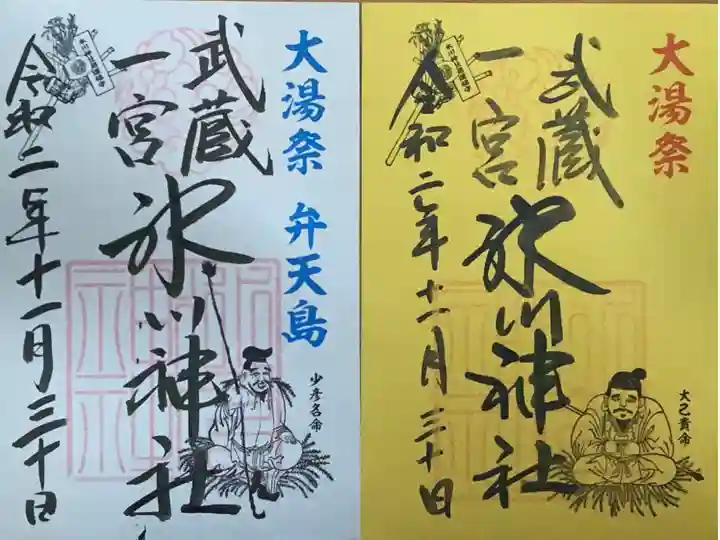 大湯祭 弁天島
武蔵
一宮
氷川神社
令和二年十一月三十日
少彦名命
大湯祭
武蔵
一宮
氷川神社
令和二年十一月三十日
大己貴命